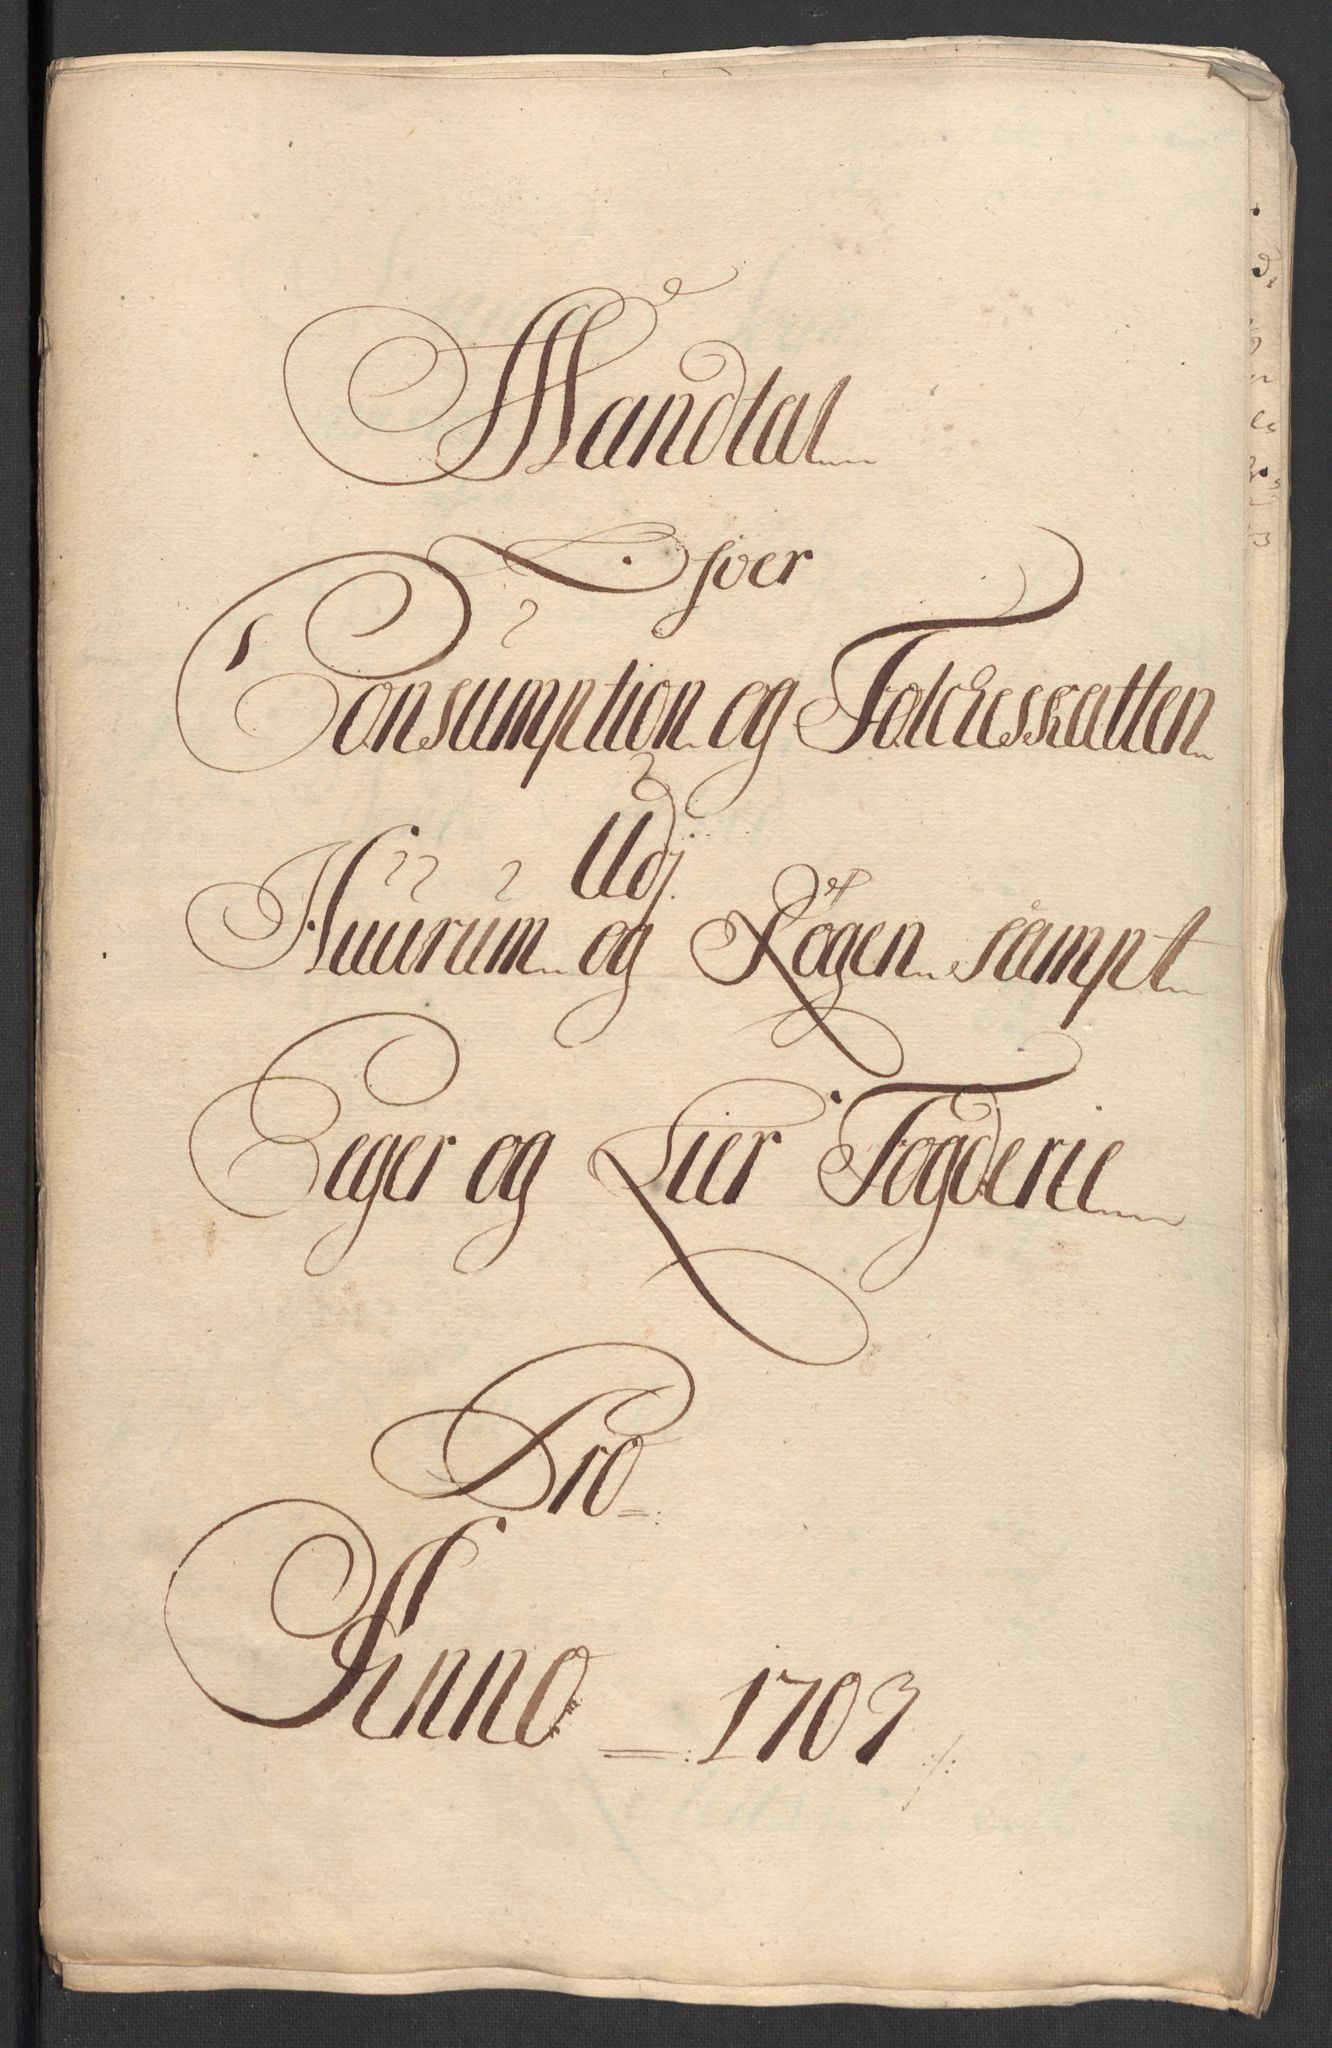 Mandtal
ofver
Consumption og Folcheskatten
Udj
Huurum og Røgen sampt
Eeger og Lier Fogderie
Pro
Anno 1703